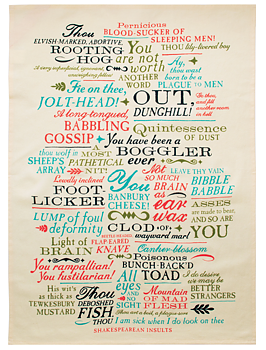 Pernicious
Thou BLOOD-SUCKER OF
ELVISH-MARKED, ABORTIVE, SLEEPING MEN!
ROOTING You thou lily-livered boy
HOG are not
worth Ay, thou
wast born to be a
ANOTHER WORD PLAGUE TO MEN
Fie on thee,
JOLT-HEAD! OUT, DUNGHILL!
A long-tongued,
BABBLING Quintessence
GOSSIP OF DUST
You have been a
BOGGLER ever
thou wolf in SHEEP'S ARRAY
A MOST PATHETICAL NIT!
Lewdly inclined You Not SO MUCH BRAIN as ear wax
LEAVE THY VAIN BIBBLE BABBLE
FOOT LICKER
BANBURY CHEESE!
LUMP of foul deformity
CLOD OF wayward marl
ASSES are made to bear, AND SO ARE YOU
Light of BRAIN
FLAP EARED KNAVE
Canker-blossom
Poisonous BUNCH-BACK'D TOAD
You rampallian!
You fustilarian!
All eyes AND NO SIGHT
I do desire we may be BETTER STRANGERS
His wit's as thick as TEWKESBURY MUSTARD
Thou DEBOSHED FISH thou
Mountain OF MAD FLESH
Thou art a boil, a plague sore
I am sick when I do look on thee
SHAKESPEAREAN INSULTS